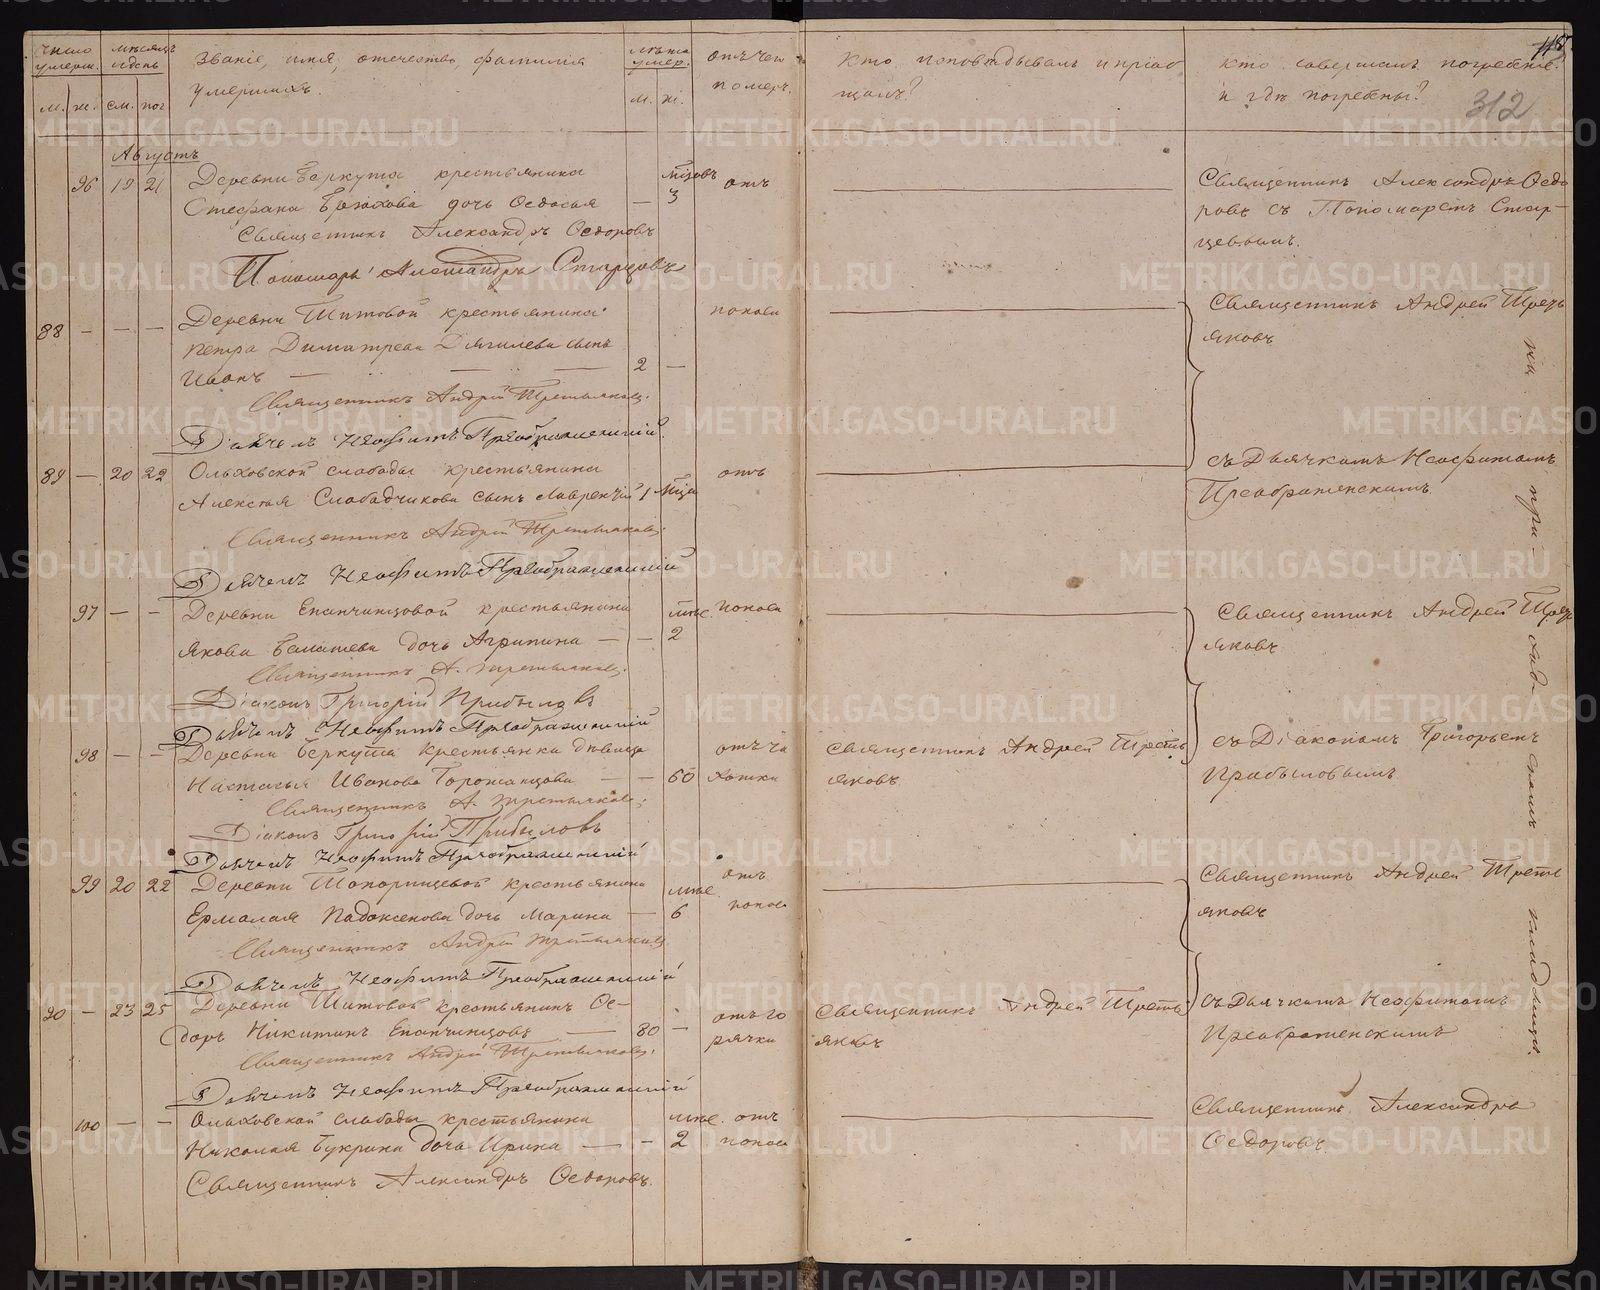 число умерш. мѣсяцъ и день Званіе, имя, отечество, фамилія умершихъ. лѣта умер. отъ чего помер. Кто исповѣдывалъ и пріобщалъ? Кто совершалъ погребеніе и гдѣ погребены?
м. ж. см. пог м. ж.
312
Августъ
96 19 21 Деревни Беркута крестьянина мцовъ отъ Священникъ Александръ Ѳедо
Стефана дочь Ѳедосья — 3 ровъ съ Пономаремъ Стар-
Священникъ Александръ Ѳедоровъ цевымъ.
Пономарь Александръ Старцовъ
88 — — — Деревни Титовой крестьянина поноса Священникъ Андрей Треть
Петра Димитреева сынъ яковъ
Иванъ — 2 —
Священникъ Андрей Третьяковъ.
Дьячекъ Неофитъ Преображенскій
89 — 20 22 Ольховской слободы крестьянина отъ съ Дьячкомъ Неофитомъ
Алексѣя Слободчикова сынъ Лаврентій 1 мца Преображенскимъ
Священникъ Андрей Третьяковъ
Дьячекъ Неофитъ Преображенскій
97 — — Деревни Епанчинцовой крестьянина поноса Священникъ Андрей Треть
Якова дочь Агрипина — — 2 яковъ
Священникъ А. Третьяковъ
Діаконъ Григорій Прибыловъ
Дьячекъ Неофитъ Преображенскій
98 — — Деревни Беркута крестьянка дѣвица отъ ча Священникъ Андрей Треть съ Діакономъ Григорьемъ
Настасья Иванова — — 60 хотки яковъ Прибыловымъ
Священникъ А. Третьяковъ
Діаконъ Григорій Прибыловъ
Дьячекъ Неофитъ Преображенскій
99 20 22 Деревни крестьянина отъ Священникъ Андрей Треть
Ермолая дочь Марина — 6 поноса яковъ
Священникъ Андрей Третьяковъ
Дьячекъ Неофитъ Преображенскій
90 — 23 25 Деревни Титовой крестьянинъ Ѳе- отъ го Священникъ Андрей Треть съ Дьячкомъ Неофитомъ
доръ Никитинъ Епанчинцовъ — 80 — рячки яковъ Преображенскимъ
Священникъ Андрей Третьяковъ.
Дьячекъ Неофитъ Преображенскій
100 — — Ольховской слободы крестьянина отъ Священникъ Александръ
Николая Букрина дочь Ирина — — 2 поноса Ѳедоровъ
Священникъ Александръ Ѳедоровъ.
на при-
METRIKI.GASO-URAL.RU